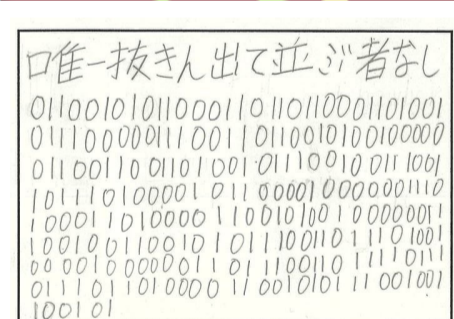 唯一抜きん出て並ぶ者なし
01100101011000110110110001101001
01110000011100110110010100100000
0110011001101001011100100111001
101110100001011000010000001110
100011010000110010100100000011
100100110010101110011011101001
000010000001101110011011110111
011101101000011001010111001001
100101